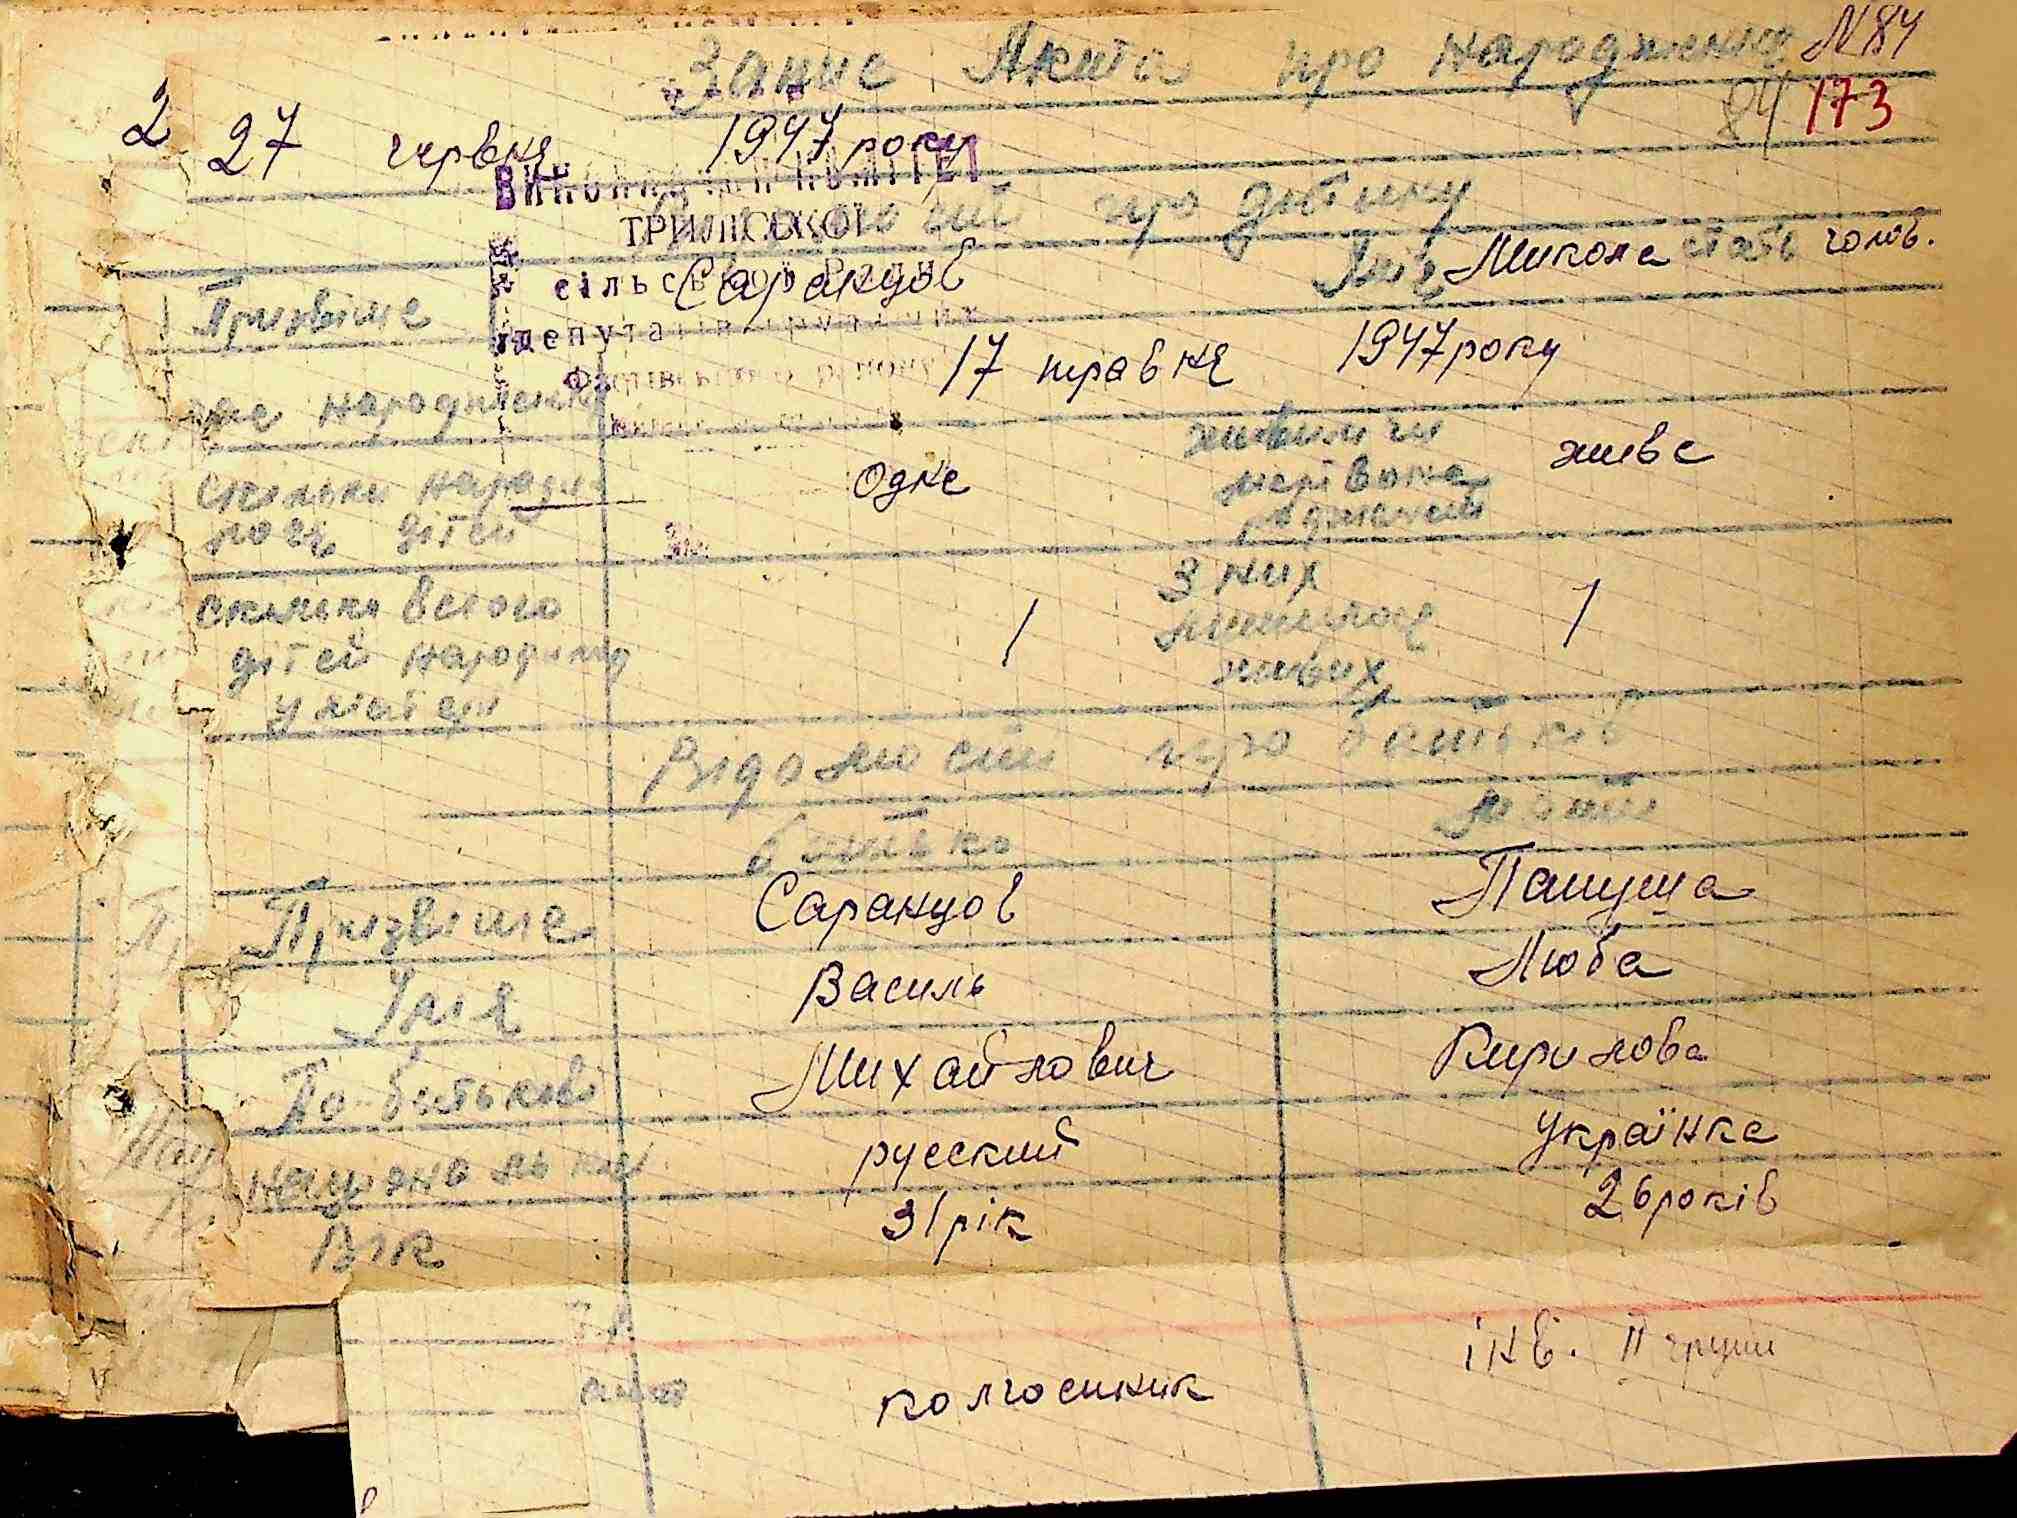 Запис Акта про народження N 84
84 173
2 27 червня 1947 року
ВИКОНАВЧИЙ КОМІТЕТ
Відомості про дитину
ТРИЛІСЬКОЇ
Прізвіще Саранцов Імя Микола стать чолов.
сільської Ради
депутатів трудящих
Фастівського району
народження 17 травня 1947 року
скільки народи- Одне живим чи живе
лось дітей мертвона
роджений
скільки всього 1 З них 1
дітей народила лишилось
у матери живих
Відомости про батьків
батько мати
Прізвіще Саранцов Папуша
Імя Василь Люба
По-батькові Михайлович Кирилова
національн русский українка
Вік 31 рік 26 років
колгоспник інв. II групи